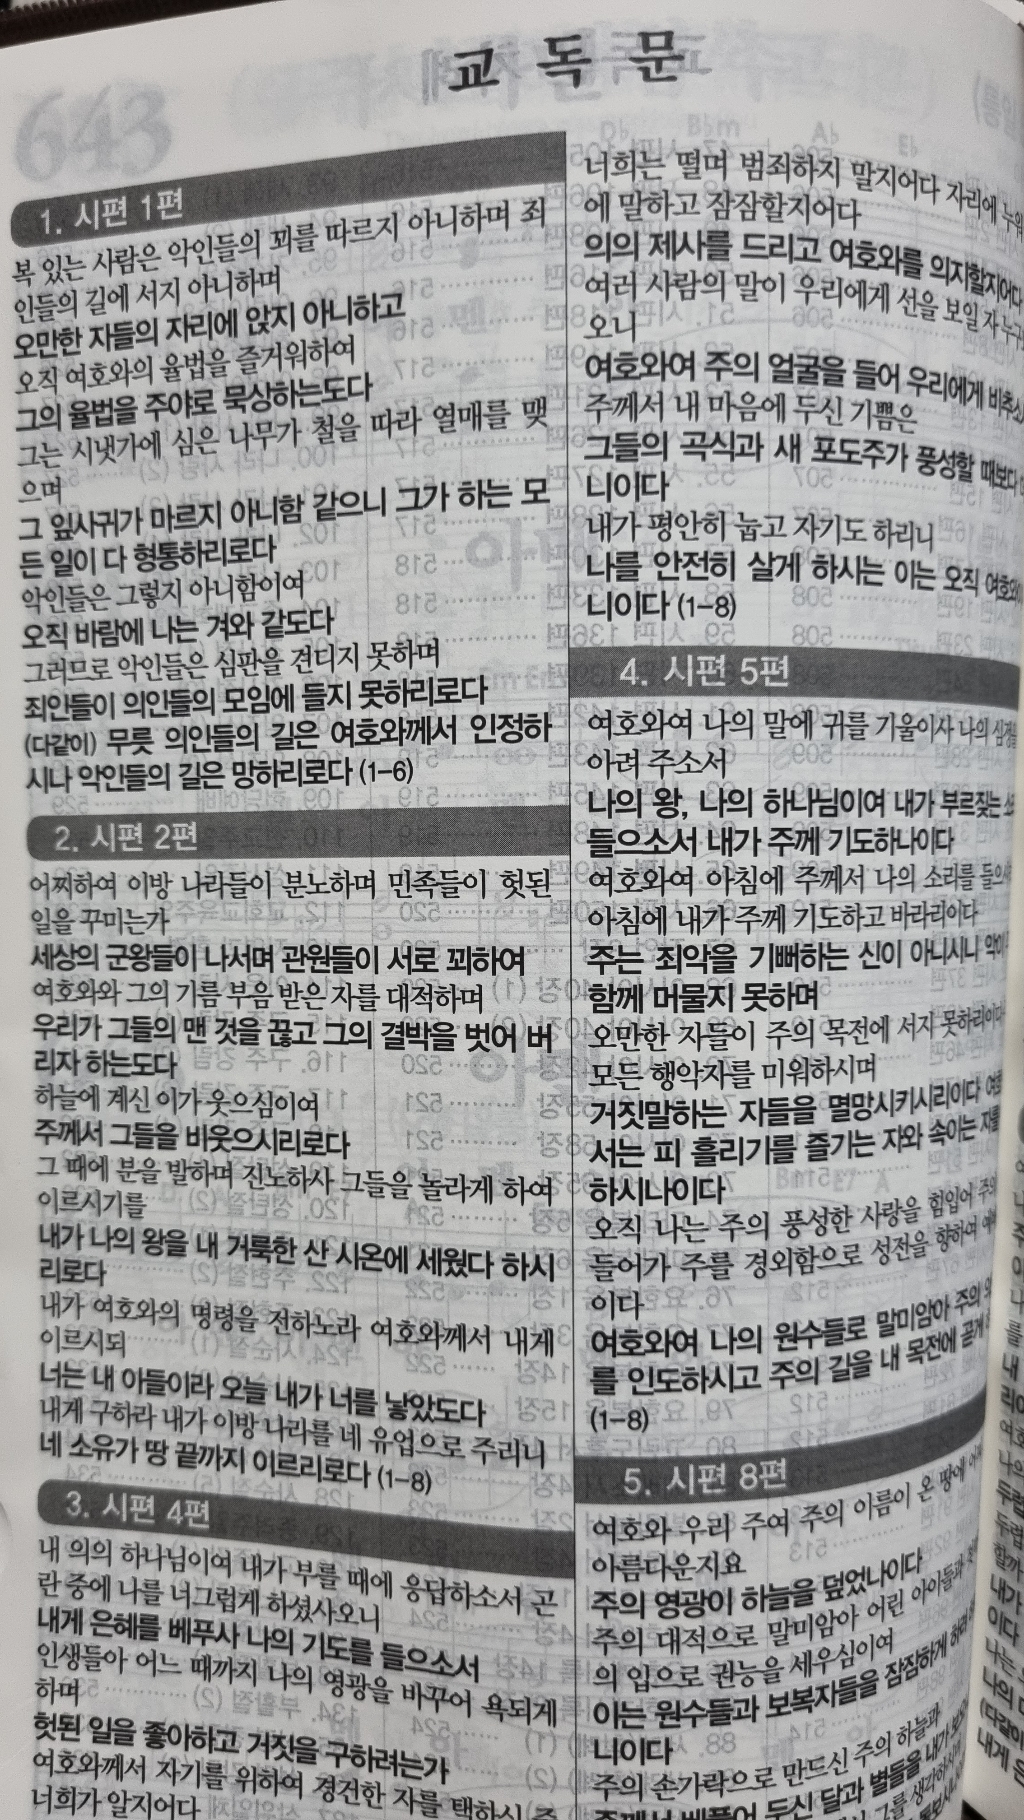 교 독 문
1. 시편 1편
복 있는 사람은 악인들의 꾀를 따르지 아니하며 죄
인들의 길에 서지 아니하며
오만한 자들의 자리에 앉지 아니하고
오직 여호와의 율법을 즐거워하여
그의 율법을 주야로 묵상하는도다
그는 시냇가에 심은 나무가 철을 따라 열매를 맺
으며
그 잎사귀가 마르지 아니함 같으니 그가 하는 모
든 일이 다 형통하리로다
악인들은 그렇지 아니함이여
오직 바람에 나는 겨와 같도다
그러므로 악인들은 심판을 견디지 못하며
죄인들이 의인들의 모임에 들지 못하리로다
(다같이) 무릇 의인들의 길은 여호와께서 인정하
시나 악인들의 길은 망하리로다 (1-6)
2. 시편 2편
어찌하여 이방 나라들이 분노하며 민족들이 헛된
일을 꾸미는가
세상의 군왕들이 나서며 관원들이 서로 꾀하여
여호와와 그의 기름 부음 받은 자를 대적하며
우리가 그들의 맨 것을 끊고 그의 결박을 벗어 버
리자 하는도다
하늘에 계신 이가 웃으심이여
주께서 그들을 비웃으시리로다
그 때에 분을 발하며 진노하사 그들을 놀라게 하여
이르시기를
내가 나의 왕을 내 거룩한 산 시온에 세웠다 하시
리로다
내가 여호와의 명령을 전하노라 여호와께서 내게
이르시되
너는 내 아들이라 오늘 내가 너를 낳았도다
내게 구하라 내가 이방 나라를 네 유업으로 주리니
네 소유가 땅 끝까지 이르리로다 (1-8)
3. 시편 4편
내 의의 하나님이여 내가 부를 때에 응답하소서 곤
란 중에 나를 너그럽게 하셨사오니
내게 은혜를 베푸사 나의 기도를 들으소서
인생들아 어느 때까지 나의 영광을 바꾸어 욕되게
하며
헛된 일을 좋아하고 거짓을 구하려는가
여호와께서 자기를 위하여 경건한 자를 택하신 줄
너희가 알지어다
너희는 떨며 범죄하지 말지어다 자리에 누워
에 말하고 잠잠할지어다
의의 제사를 드리고 여호와를 의지할지어다
여러 사람의 말이 우리에게 선을 보일 자 누구
오니
여호와여 주의 얼굴을 들어 우리에게 비추소
주께서 내 마음에 두신 기쁨은
그들의 곡식과 새 포도주가 풍성할 때보다
니이다
내가 평안히 눕고 자기도 하리니
나를 안전히 살게 하시는 이는 오직 여호와
니이다 (1-8)
4. 시편 5편
여호와여 나의 말에 귀를 기울이사 나의 심정을
아려 주소서
나의 왕, 나의 하나님이여 내가 부르짖는
들으소서 내가 주께 기도하나이다
여호와여 아침에 주께서 나의 소리를 들으시
아침에 내가 주께 기도하고 바라리이다
주는 죄악을 기뻐하는 신이 아니시니 악이
함께 머물지 못하며
오만한 자들이 주의 목전에 서지 못하리이다
모든 행악자를 미워하시며
거짓말하는 자들을 멸망시키시리이다
서는 피 흘리기를 즐기는 자와 속이는 자를
하시나이다
오직 나는 주의 풍성한 사랑을 힘입어 주의
들어가 주를 경외함으로 성전을 향하여
이다
여호와여 나의 원수들로 말미암아 주의
를 인도하시고 주의 길을 내 목전에 곧게
(1-8)
5. 시편 8편
여호와 우리 주여 주의 이름이 온 땅에
아름다운지요
주의 영광이 하늘을 덮었나이다
주의 대적으로 말미암아 어린 아이들과
의 입으로 권능을 세우심이여
이는 원수들과 보복자들을 잠잠하게
니이다
주의 손가락으로 만드신 주의 하늘과
주께서 베풀어 두신 달과 별들을 내가